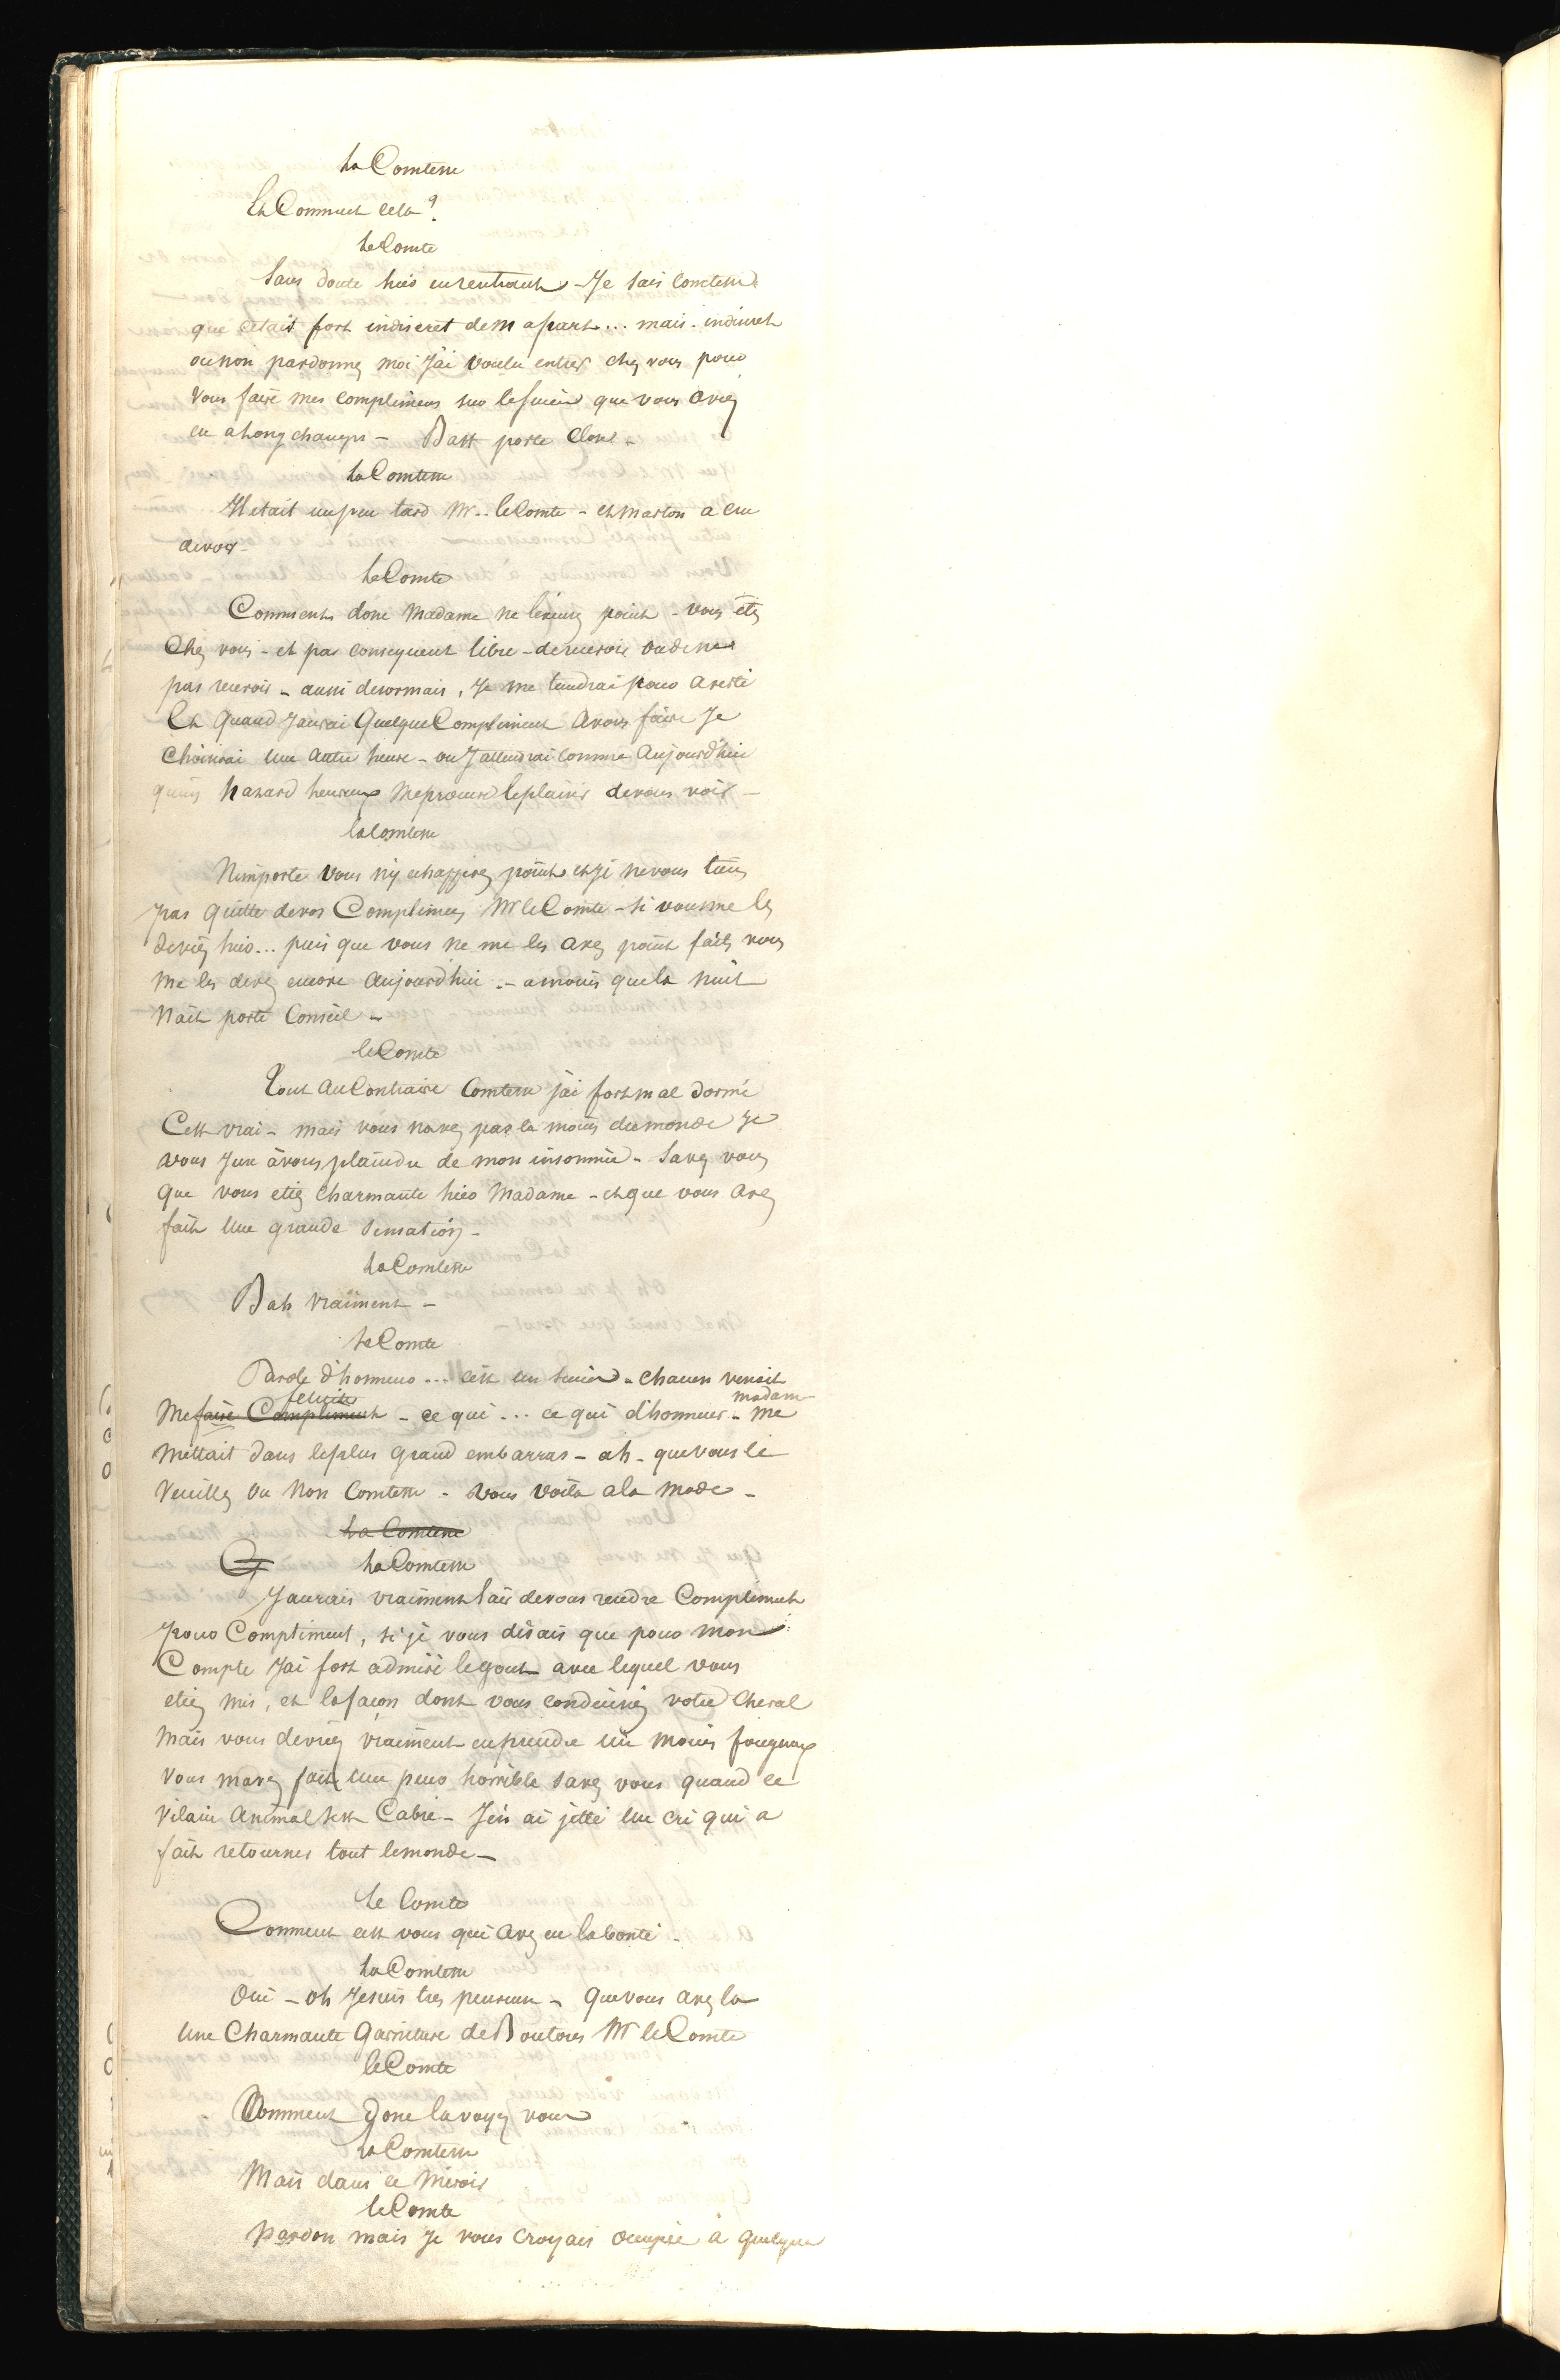 La Comtesse
Et Comment cela?
Le Comte
Sans doute hier en rentrant - Je sais Comtesse
que cetait fort indiscret de ma part... mais. indiscret
ou non pardonnez moi J'ai voulu entrer chez vous pour
vous faire mes complimens sur le succes que vous aviez
eu a Long champs - Bast porte Close -
La Comtesse
Il etait un peu tard Mr.. le Comte - et Marton a cru
devoir -
Le Comte
Comment donc Madame ne l'excusez point - vous êtes
Chez vous - et par consequent libre - de recevoir ou de ne
pas recevoir - aussi desormais, Je me tiendrai pour averti
Et Quand J'aurai Quelque Compliment a vous faire Je
Choisirai une autre heure - ou J'attendrai comme Aujourd'hui
qu'un hazard heureux me procure le plaisir de vous voir -
la Comtesse
N'importe vous n'y echapperez point et je ne vous tiens
pas quitte de vos Complimens Mr le Comte - si vous me les
deviez hier... puis que vous ne me les avez point faits vous
me les devez encore Aujourd'hui - a moins que la nuit
N'ait porté Conseil -
le Comte
Tout au Contraire Comtesse j'ai fort mal dormi
C'est vrai - mais vous n'avez pas le moins du monde Je
vous Jure à vous plaindre de mon insomnie - Savez vous
que vous etiez charmante hier Madame - et que vous avez
fait une grande Sensation -
La Comtesse
Bah vraiment -
Le Comte
Parole d'honneur... c'est un succes - chacun venait
feliciter madame
Me faire Compliment - ce qui... ce qui d'honneur - me
mettait dans le plus grand embarras - ah - que vous le
Veuillez ou Non Comtesse - Vous voila a la mode -
La Comtesse
La Comtesse
J'aurais vraiment l'air de vous rendre Compliment
pour Compliment, si je vous disais que pour mon
Compte J'ai fort admiré le gout avec lequel vous
etiez mis, et la façon dont vous conduisiez votre Cheval
Mais vous devriez vraiment en prendre un moins fougueux
Vous m'avez fait une peur horrible savez vous quand ce
Vilain Animal s'est Cabré - J'en ai jetté un cri qui a
fait retourner tout le monde -
Le Comte
Comment c'est vous qui avez eu la bonté -
La Comtesse
Oui - oh Je suis tres peureuse - Que vous avez la
Une Charmante Garniture de Boutons Mr le Comte
le Comte
Comment donc la voyez vous
La Comtesse
Mais dans ce Miroir
le Comte
Pardon mais Je vous Croyais occupée à quelque